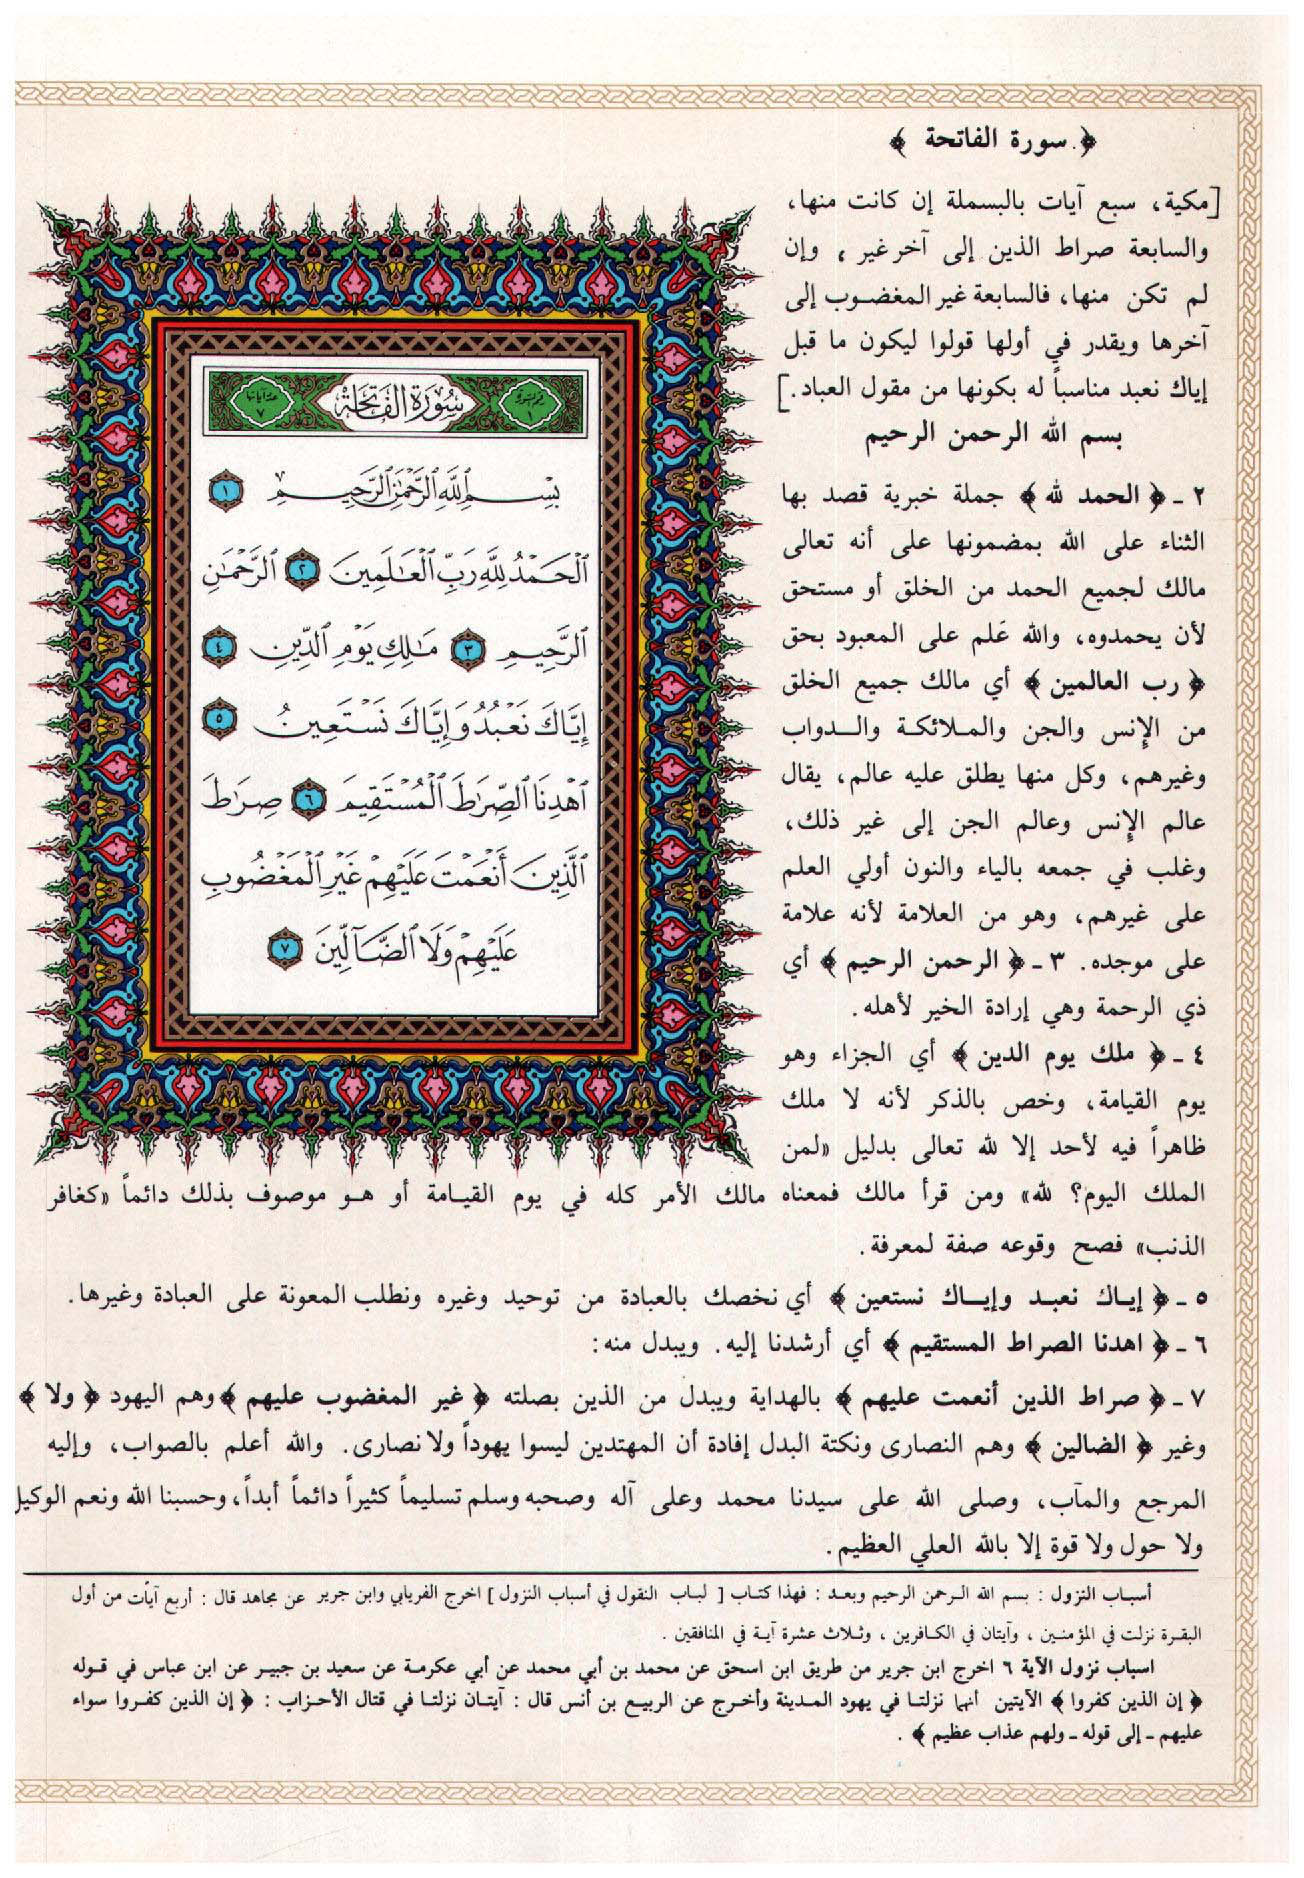 ﴿ سورة الفاتحة ﴾
[مكية، سبع آيات بالبسملة إن كانت منها،
والسابعة صراط الذين إلى آخر غير ، وإن
لم تكن منها، فالسابعة غير المغضوب إلى
آخرها ويقدر في أولها قولوا ليكون ما قبل
إياك نعبد مناسباً له بكونها من مقول العباد.]
بسم الله الرحمن الرحيم
٢ ـ ﴿ الحمد لله ﴾ جملة خبرية قصد بها
الثناء على الله بمضمونها على أنه تعالى
مالك لجميع الحمد من الخلق أو مستحق
لأن يحمدوه، والله عَلم على المعبود بحق
﴿ رب العالمين ﴾ أي مالك جميع الخلق
من الإنس والجن والملائكة والدواب
وغيرهم، وكل منها يطلق عليه عالم، يقال
عالم الإنس وعالم الجن إلى غير ذلك،
وغلب في جمعه بالياء والنون أولي العلم
على غيرهم، وهو من العلامة لأنه علامة
على موجده. ٣ ـ ﴿ الرحمن الرحيم ﴾ أي
ذي الرحمة وهي إرادة الخير لأهله.
٤ ـ ﴿ ملك يوم الدين ﴾ أي الجزاء وهو
يوم القيامة، وخص بالذكر لأنه لا ملك
ظاهراً فيه لأحد إلا لله تعالى بدليل «لمن
الملك اليوم؟ لله» ومن قرأ مالك فمعناه مالك الأمر كله في يوم القيامة أو هو موصوف بذلك دائماً «كغافر
الذنب» فصح وقوعه صفة لمعرفة.
٥ ـ ﴿ إياك نعبد وإياك نستعين ﴾ أي نخصك بالعبادة من توحيد وغيره ونطلب المعونة على العبادة وغيرها.
٦ ـ ﴿ اهدنا الصراط المستقيم ﴾ أي أرشدنا إليه. ويبدل منه:
٧ ـ ﴿ صراط الذين أنعمت عليهم ﴾ بالهداية ويبدل من الذين بصلته ﴿ غير المغضوب عليهم ﴾ وهم اليهود ﴿ ولا ﴾
وغير ﴿ الضالين ﴾ وهم النصارى ونكتة البدل إفادة أن المهتدين ليسوا يهوداً ولا نصارى. والله أعلم بالصواب، وإليه
المرجع والمآب، وصلى الله على سيدنا محمد وعلى آله وصحبه وسلم تسليماً كثيراً دائماً أبداً، وحسبنا الله ونعم الوكيل
ولا حول ولا قوة إلا بالله العلي العظيم.
رقم السورة ١
سُورَةُ الفَاتِحَة
عدد آياتها ٧
بِسْمِ ٱللَّهِ ٱلرَّحْمَٰنِ ٱلرَّحِيمِ ١
ٱلْحَمْدُ لِلَّهِ رَبِّ ٱلْعَٰلَمِينَ ٢ ٱلرَّحْمَٰنِ
ٱلرَّحِيمِ ٣ مَٰلِكِ يَوْمِ ٱلدِّينِ ٤
إِيَّاكَ نَعْبُدُ وَإِيَّاكَ نَسْتَعِينُ ٥
ٱهْدِنَا ٱلصِّرَٰطَ ٱلْمُسْتَقِيمَ ٦ صِرَٰطَ
ٱلَّذِينَ أَنْعَمْتَ عَلَيْهِمْ غَيْرِ ٱلْمَغْضُوبِ
عَلَيْهِمْ وَلَا ٱلضَّآلِّينَ ٧
أسباب النزول : بسم الله الرحمن الرحيم وبعد : فهذا كتاب [ لباب النقول في أسباب النزول ] اخرج الفريابي وابن جرير عن مجاهد قال : أربع آيات من أول
البقرة نزلت في المؤمنين ، وآيتان في الكافرين ، وثلاث عشرة آية في المنافقين .
اسباب نزول الآية ٦ اخرج ابن جرير من طريق ابن اسحق عن محمد بن أبي محمد عن أبي عكرمة عن سعيد بن جبير عن ابن عباس في قوله
﴿ إن الذين كفروا ﴾ الآيتين أنهما نزلتا في يهود المدينة وأخرج عن الربيع بن أنس قال : آيتان نزلتا في قتال الأحزاب : ﴿ إن الذين كفروا سواء
عليهم ـ إلى قوله ـ ولهم عذاب عظيم ﴾ .